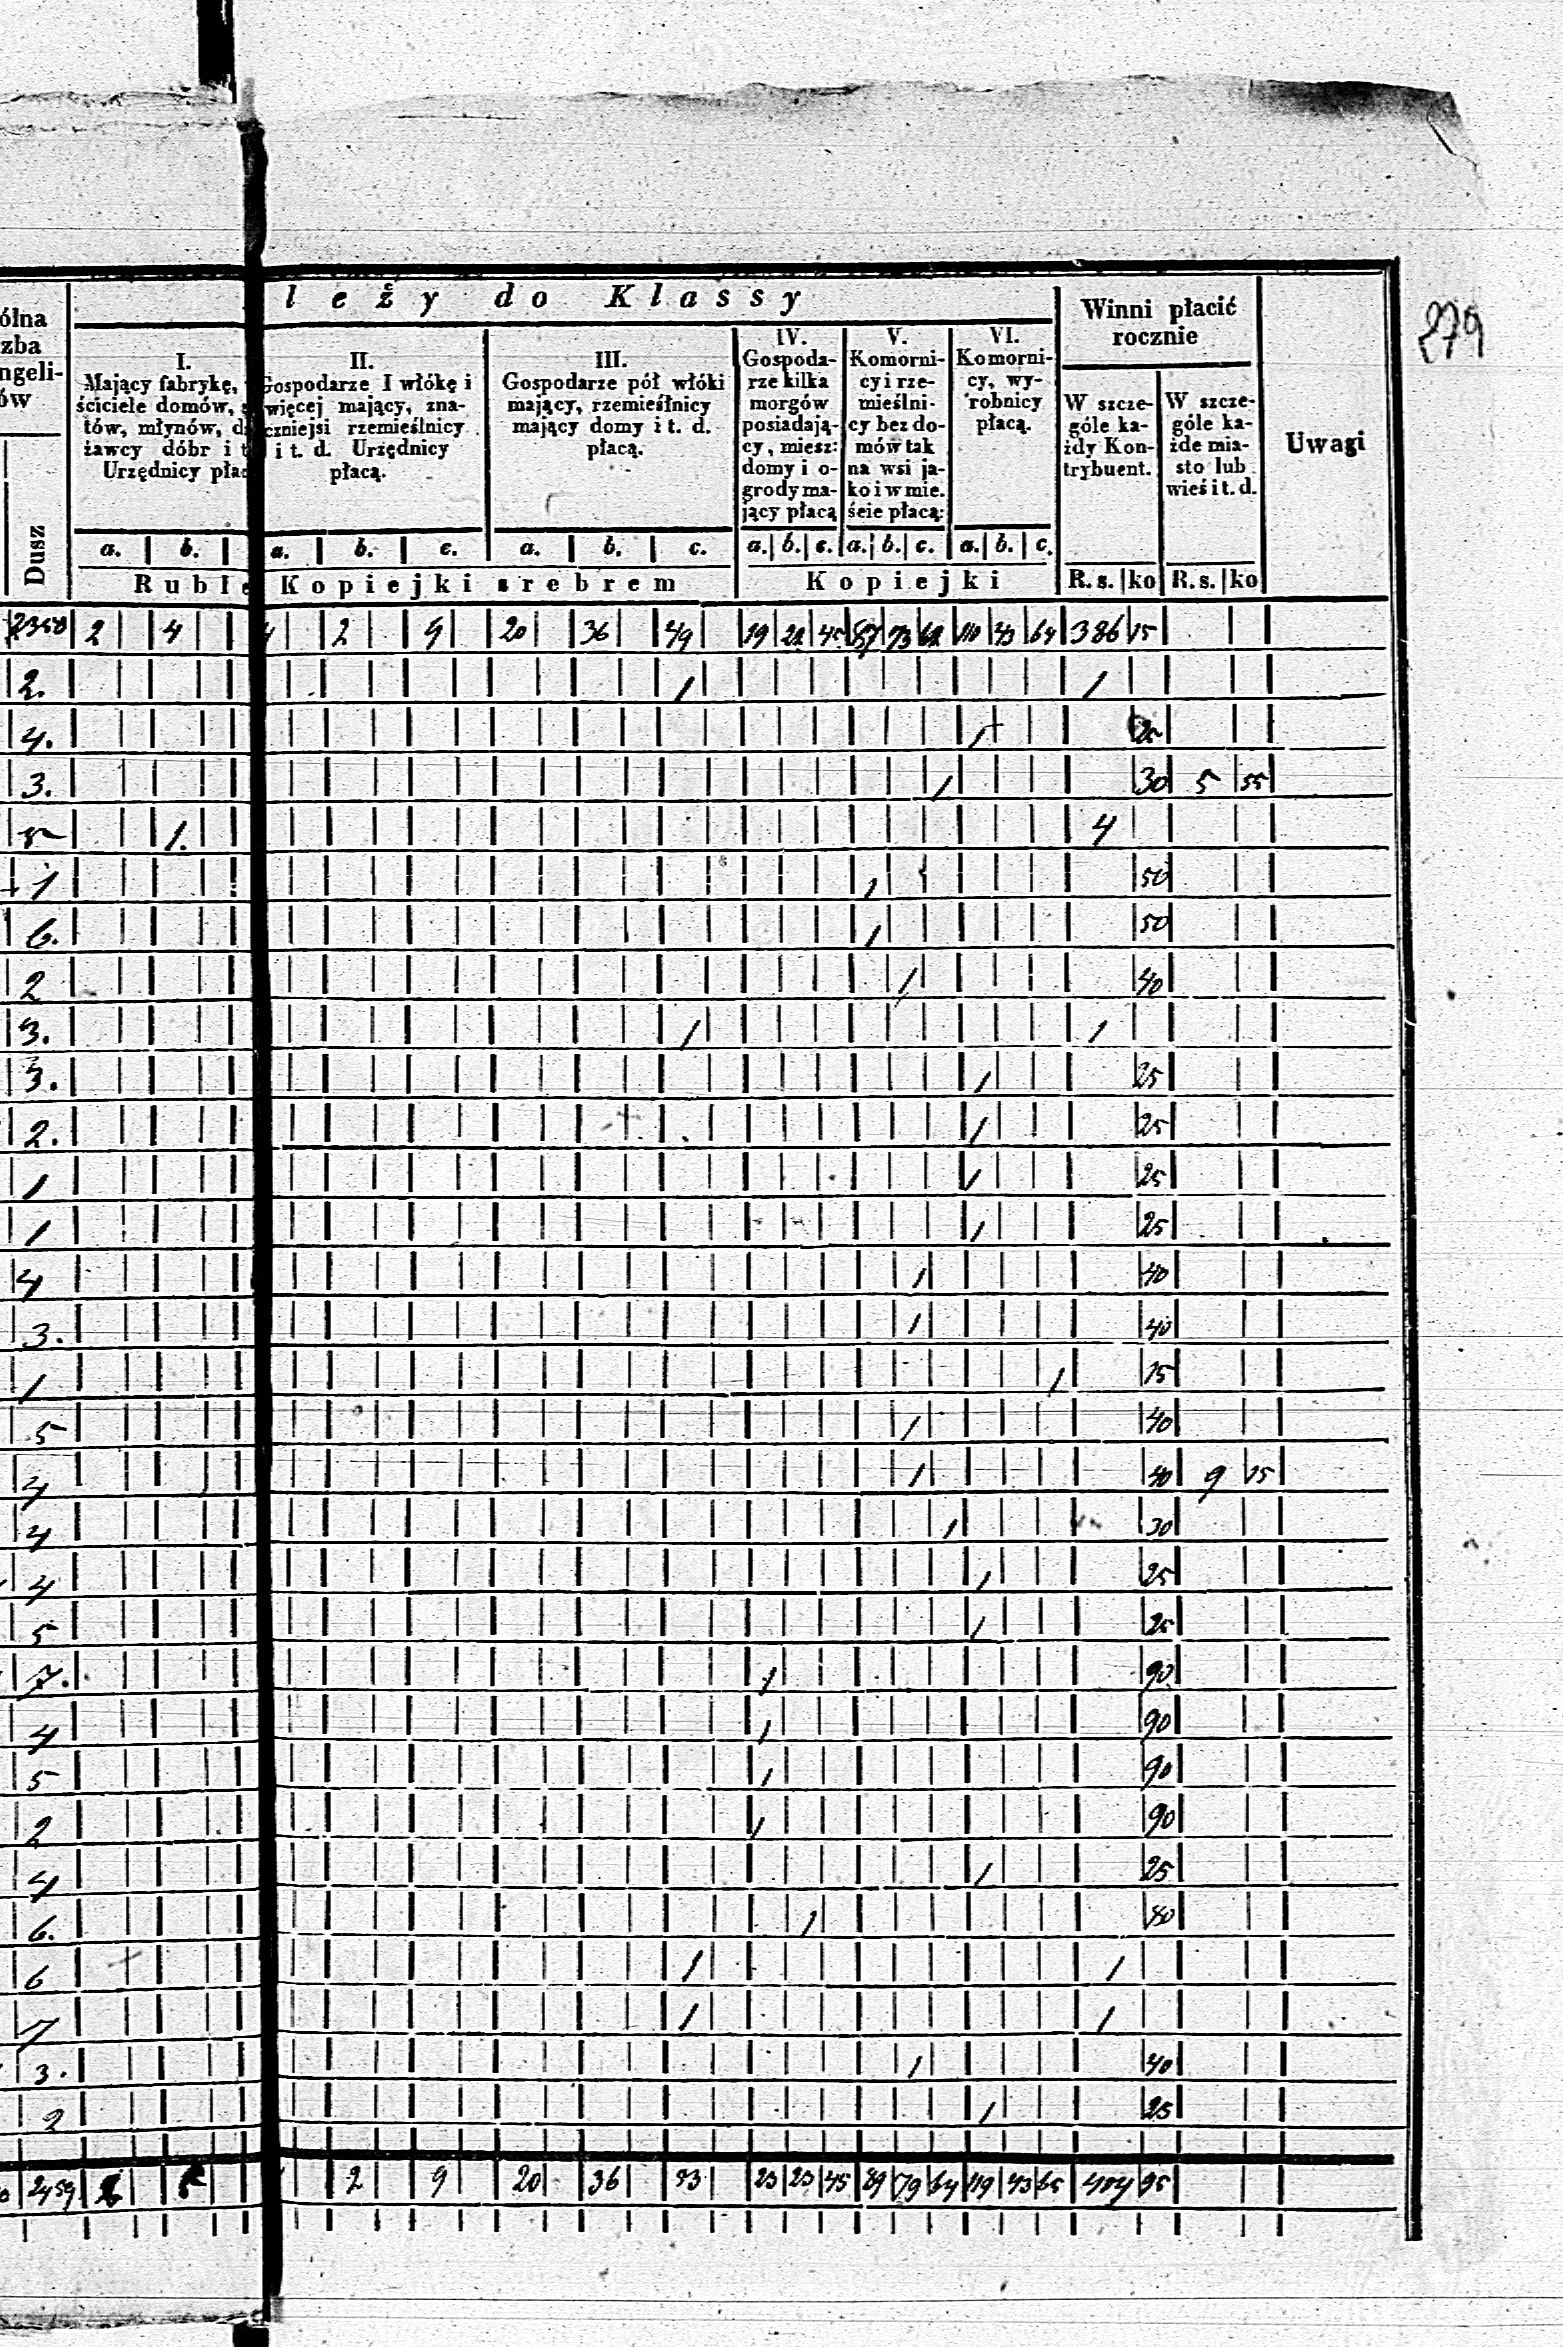 279
leży do Klassy
Winni płacić rocznie
Uwagi
ólna
zba
ngeli-
ów
Dusz
I.
Mający fabrykę,
ściciele domów,
tów, młynów, d
żawcy dóbr i t
Urzędnicy płac
II.
Gospodarze I włókę i
więcej mający, zna-
czniejsi rzemieślnicy
i t. d. Urzędnicy
płacą.
III.
Gospodarze pół włóki
mający, rzemieślnicy
mający domy i t. d.
płacą.
IV.
Gospoda-
rze kilka
morgów
posiadają-
cy, miesz:
domy i o-
grody ma-
jący płacą
V.
Komorni-
cy i rze-
mieślni-
cy bez do-
mów tak
na wsi ja-
ko i w mie.
ście płacą:
VI.
Komorni-
cy, wy-
robnicy
płacą.
W szcze-
góle ka-
żdy Kon-
trybuent.
W szcze-
góle ka-
żde mia-
sto lub
wieś i t. d.
a. b. a. b. c. a. b. c. a. b. c. a. b. c. a. b. c.
Ruble Kopiejki srebrem Kopiejki R. s. ko R. s. ko
2358 2 4 4 2 9 20 36 49 19 22 45 87 73 62 110 43 64 386 15
2. 1 1
4. 1 25
3. 1 30 5 55
1. 4
1 1 50
6. 1 50
2 1 40
3. 1 1
3. 1 25
2. 1 25
1 1 25
1 1 25
4 1 40
3. 1 40
1 1 15
5 1 40
4 1 40 9 15
4 1 30
4 1 25
5 1 25
7. 1 90
4 1 90
5 1 90
2 1 90
4 1 25
6. 1 80
6 1 1
7 1 1
3. 1 40
2 1 25
2459 2 9 20 36 53 23 23 45 89 79 64 119 43 65 404 95